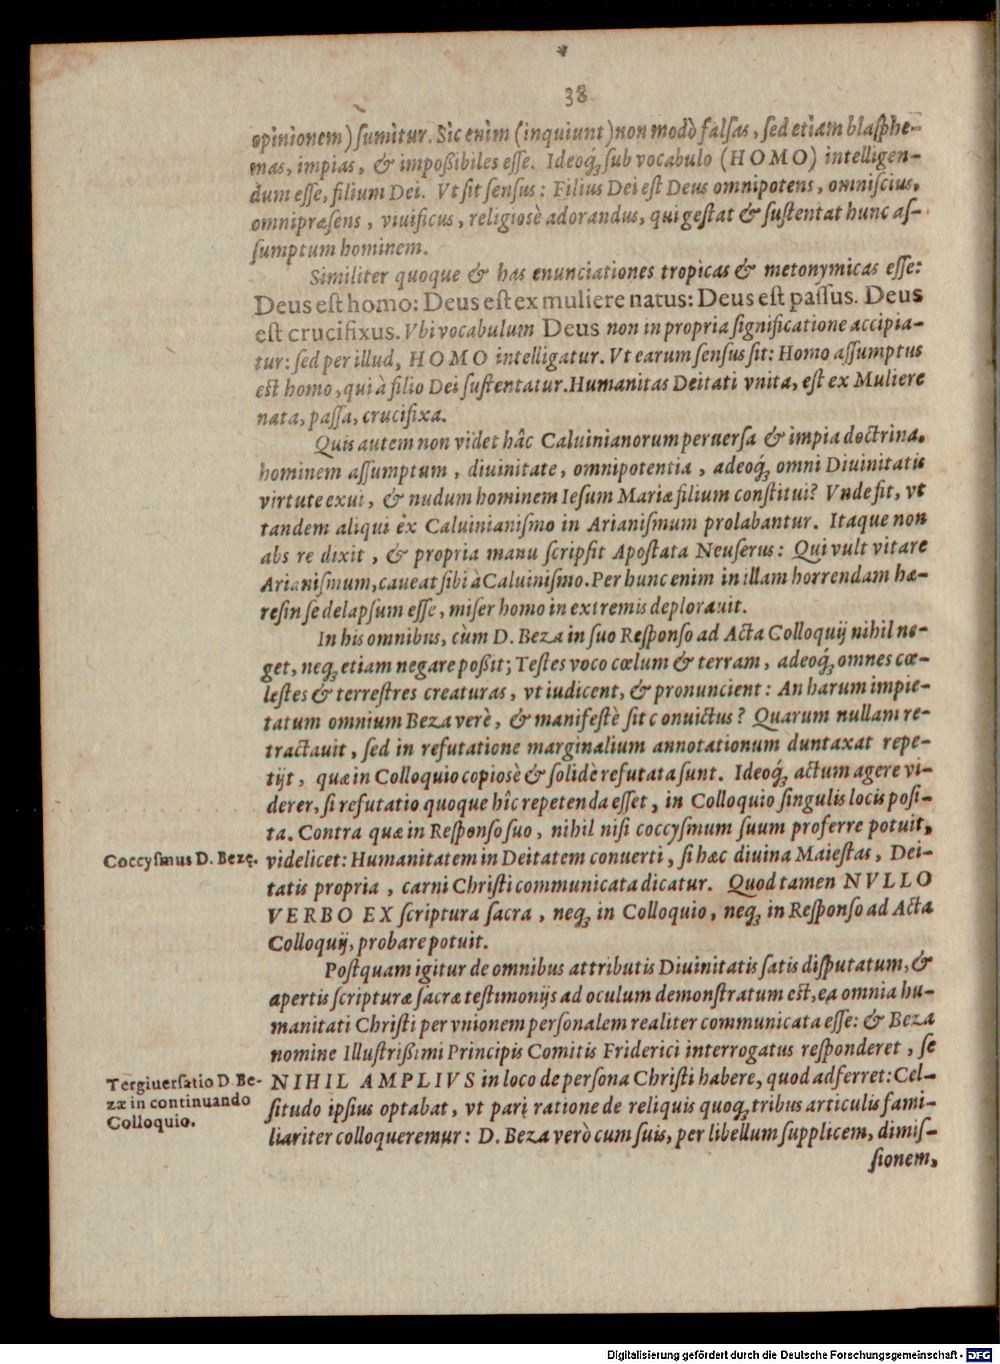 38
opinionem) ſumitur. Sic enim (inquiunt) non modò falſas, ſed etiam blaſphe-
mas, impias, & impoßibiles eſſe. Ideoq́ꝫ ſub vocabulo (HOMO) intelligen-
dum eſſe, filium Dei. Vt ſit ſenſus: Filius Dei eſt Deus omnipotens, omniſcius,
omnipræſens, viuificus, religiosè adorandus, qui geſtat & ſuſtentat hunc aſ-
ſumptum hominem.
Similiter quoque & has enunciationes tropicas & metonymicas eſſe:
Deus eſt homo: Deus eſt ex muliere natus: Deus eſt paſſus. Deus
eſt crucifixus. Vbi vocabulum Deus non in propria ſignificatione accipia-
tur: ſed per illud, HOMO intelligatur. Vt earum ſenſus ſit: Homo aſſumptus
eſt homo, qui à filio Dei ſuſtentatur. Humanitas Deitati vnita, eſt ex Muliere
nata, paſſa, crucifixa.
Quis autem non videt hâc Caluinianorum peruerſa & impia doctrina,
hominem aſſumptum, diuinitate, omnipotentia, adeoq́ꝫ omni Diuinitatis
virtute exui, & nudum hominem Ieſum Mariæ filium conſtitui? Vnde fit, vt
tandem aliqui èx Caluinianiſmo in Arianiſmum prolabantur. Itaque non
abs re dixit, & propria manu ſcripſit Apoſtata Neuſerus: Qui vult vitare
Arianiſmum, caueat ſibi à Caluiniſmo. Per hunc enim in illam horrendam hæ-
reſin ſe delapſum eſſe, miſer homo in extremis deplorauit.
In his omnibus, cùm D. Beza in ſuo Reſponſo ad Acta Colloquij nihil ne-
get, neqꝫ etiam negare poßit; Teſtes voco cœlum & terram, adeoq́ꝫ omnes cœ-
leſtes & terreſtres creaturas, vt iudicent, & pronuncient: An harum impie-
tatum omnium Beza verè, & manifeſtè ſit conuictus? Quarum nullam re-
tractauit, ſed in refutatione marginalium annotationum duntaxat repe-
tijt, quæ in Colloquio copiosè & ſolidè refutata ſunt. Ideoq́ꝫ actum agere vi-
derer, ſi refutatio quoque hîc repetenda eſſet, in Colloquio ſingulis locis poſi-
ta. Contra quæ in Reſponſo ſuo, nihil niſi coccyſmum ſuum proferre potuit,
Coccyſmus D. Bezę.
videlicet: Humanitatem in Deitatem conuerti, ſi hæc diuina Maieſtas, Dei-
tatis propria, carni Chriſti communicata dicatur. Quod tamen NVLLO
VERBO EX ſcriptura ſacra, neqꝫ in Colloquio, neqꝫ in Reſponſo ad Acta
Colloquij, probare potuit.
Poſtquam igitur de omnibus attributis Diuinitatis ſatis diſputatum, &
apertis ſcripturæ ſacræ teſtimonijs ad oculum demonſtratum eſt, ea omnia hu-
manitati Chriſti per vnionem perſonalem realiter communicata eſſe: & Beza
nomine Illuſtrißimi Principis Comitis Friderici interrogatus reſponderet, ſe
Tergiuerſatio D. Be-
zæ in continuando
Colloquio.
NIHIL AMPLIVS in loco de perſona Chriſti habere, quod adferret: Cel-
ſitudo ipſius optabat, vt pari ratione de reliquis quoqꝫ tribus articulis fami-
liariter colloqueremur: D. Beza verò cum ſuis, per libellum ſupplicem, dimiſ-
ſionem,
Digitalisierung gefördert durch die Deutsche Forschungsgemeinschaft - DFG